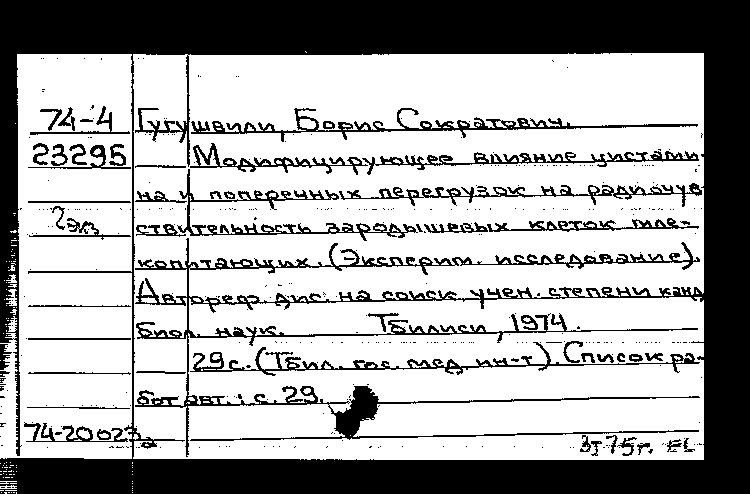 74-4 Гугушвили, Борис Сократович.
23295 Модифицирующее влияние цистами-
на и поперечных перегрузок на радиочув-
2 экз. ствительность зародышевых клеток мле-
копитающих. (Эксперим. исследование).
Автореф. дис. на соиск. учен. степени канд.
биол. наук. Тбилиси, 1974.
29 с. (Тбил. гос. мед. ин-т). Список ра-
бот авт.: с. 29.
74-20023а
75г. EL